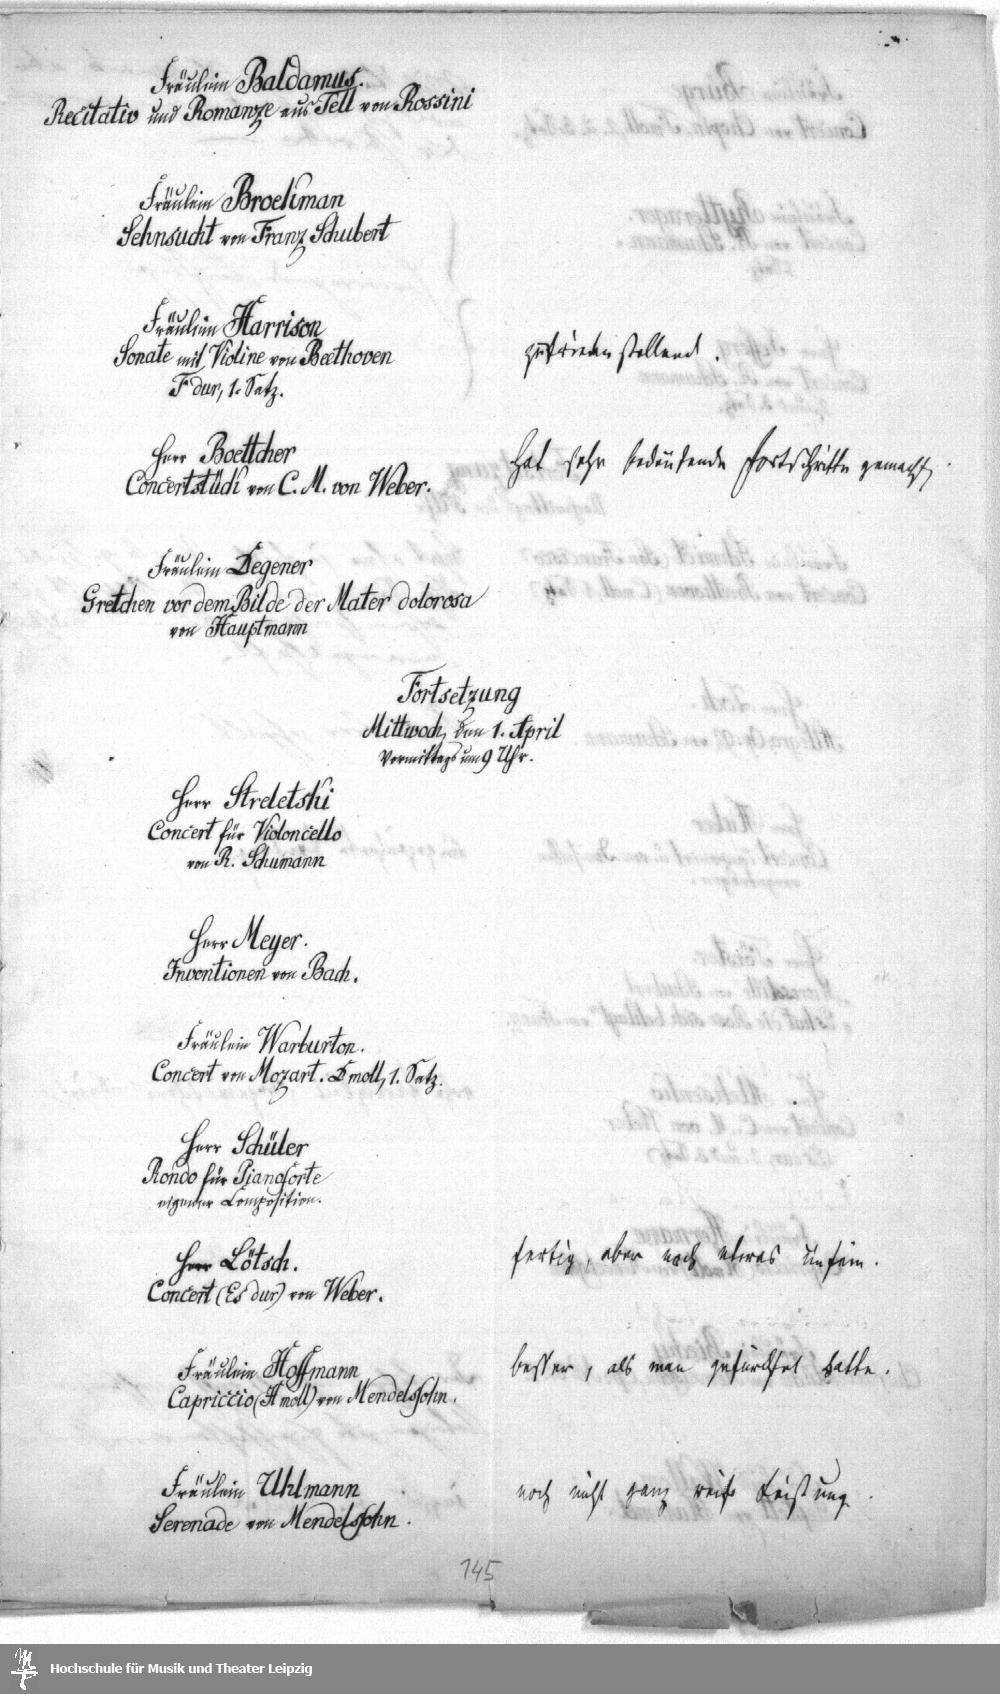 Fräulein Baldamus.
Recitativ und Romanze aus Tell von Rossini
Fräulein Broekman
Sehnsucht von Franz Schubert
Fräulein Harrison
Sonate mit Violine von Beethoven
zufriedenstellend.
F dur, 1. Satz.
Herr Boettcher
Hat sehr bedeutende Fortschritte gemacht.
Concertstück von C. M. von Weber.
Fräulein Degener
Gretchen vor dem Bilde der Mater dolorosa
von Hauptmann
Fortsetzung
Mittwoch, den 1. April
Vormittags um 9 Uhr.
Herr Streletski
Concert für Violoncello
von R. Schumann
Herr Meyer.
Inventionen von Bach.
Fräulein Warburton.
Concert von Mozart. D moll, 1. Satz.
Herr Schüler
Rondo für Pianoforte
eigener Composition.
Herr Lötsch.
fertig, aber noch etwas unfein.
Concert (Es dur) von Weber.
Fräulein Hoffmann
besser, als man gefürchtet hatte.
Capriccio (A moll) von Mendelssohn.
Fräulein Uhlmann
noch nicht ganz reife Leistung.
Serenade von Mendelssohn.
145
Hochschule für Musik und Theater Leipzig